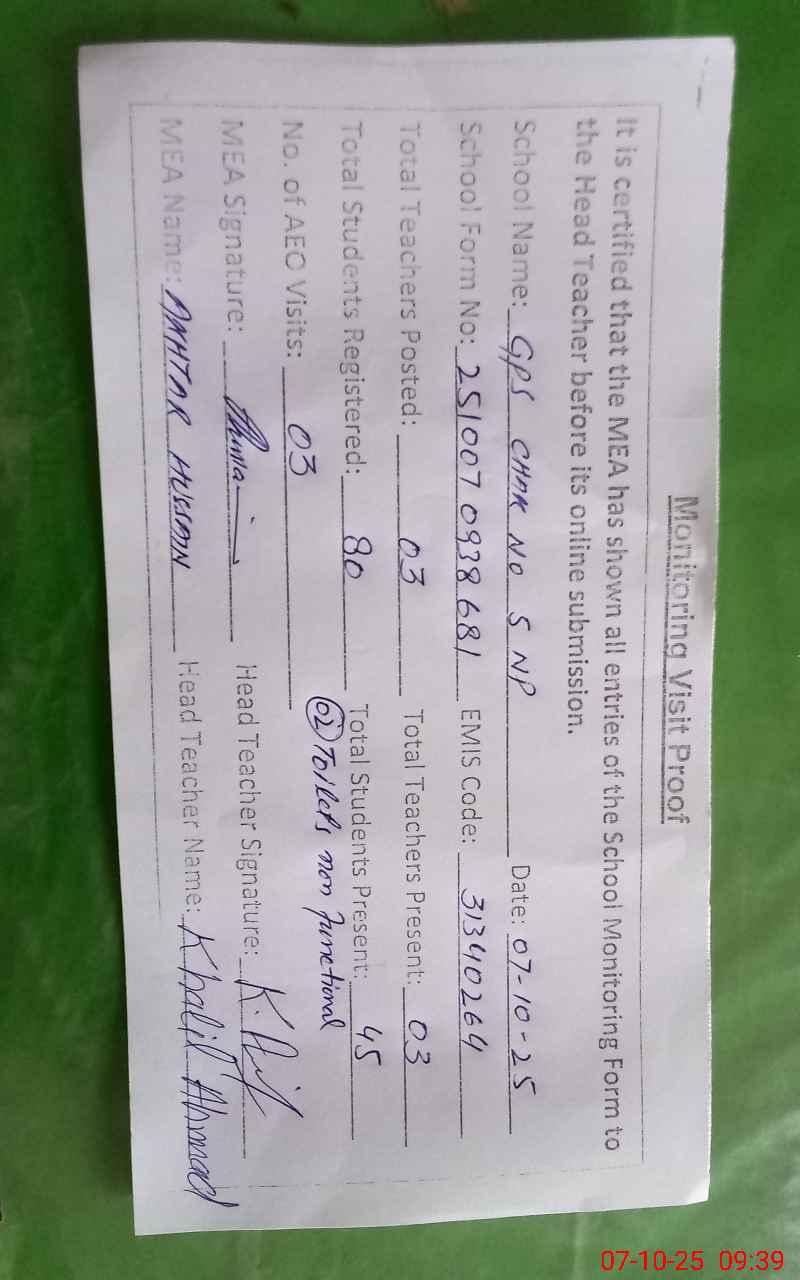 Monitoring Visit Proof
It is certified that the MEA has shown all entries of the School Monitoring Form to
the Head Teacher before its online submission.
School Name: GPS CHAK NO 5 NP Date: 07-10-25
School Form No: 251007 0938 681 EMIS Code: 31340264
Total Teachers Posted: 03 Total Teachers Present: 03
Total Students Registered: 80 Total Students Present: 45
No. of AEO Visits: 03 02 Toilets non functional
MEA Signature: Head Teacher Signature:
MEA Name: AKHTAR HUSSAIN Head Teacher Name: Khalil Ahmad
07-10-25 09:39